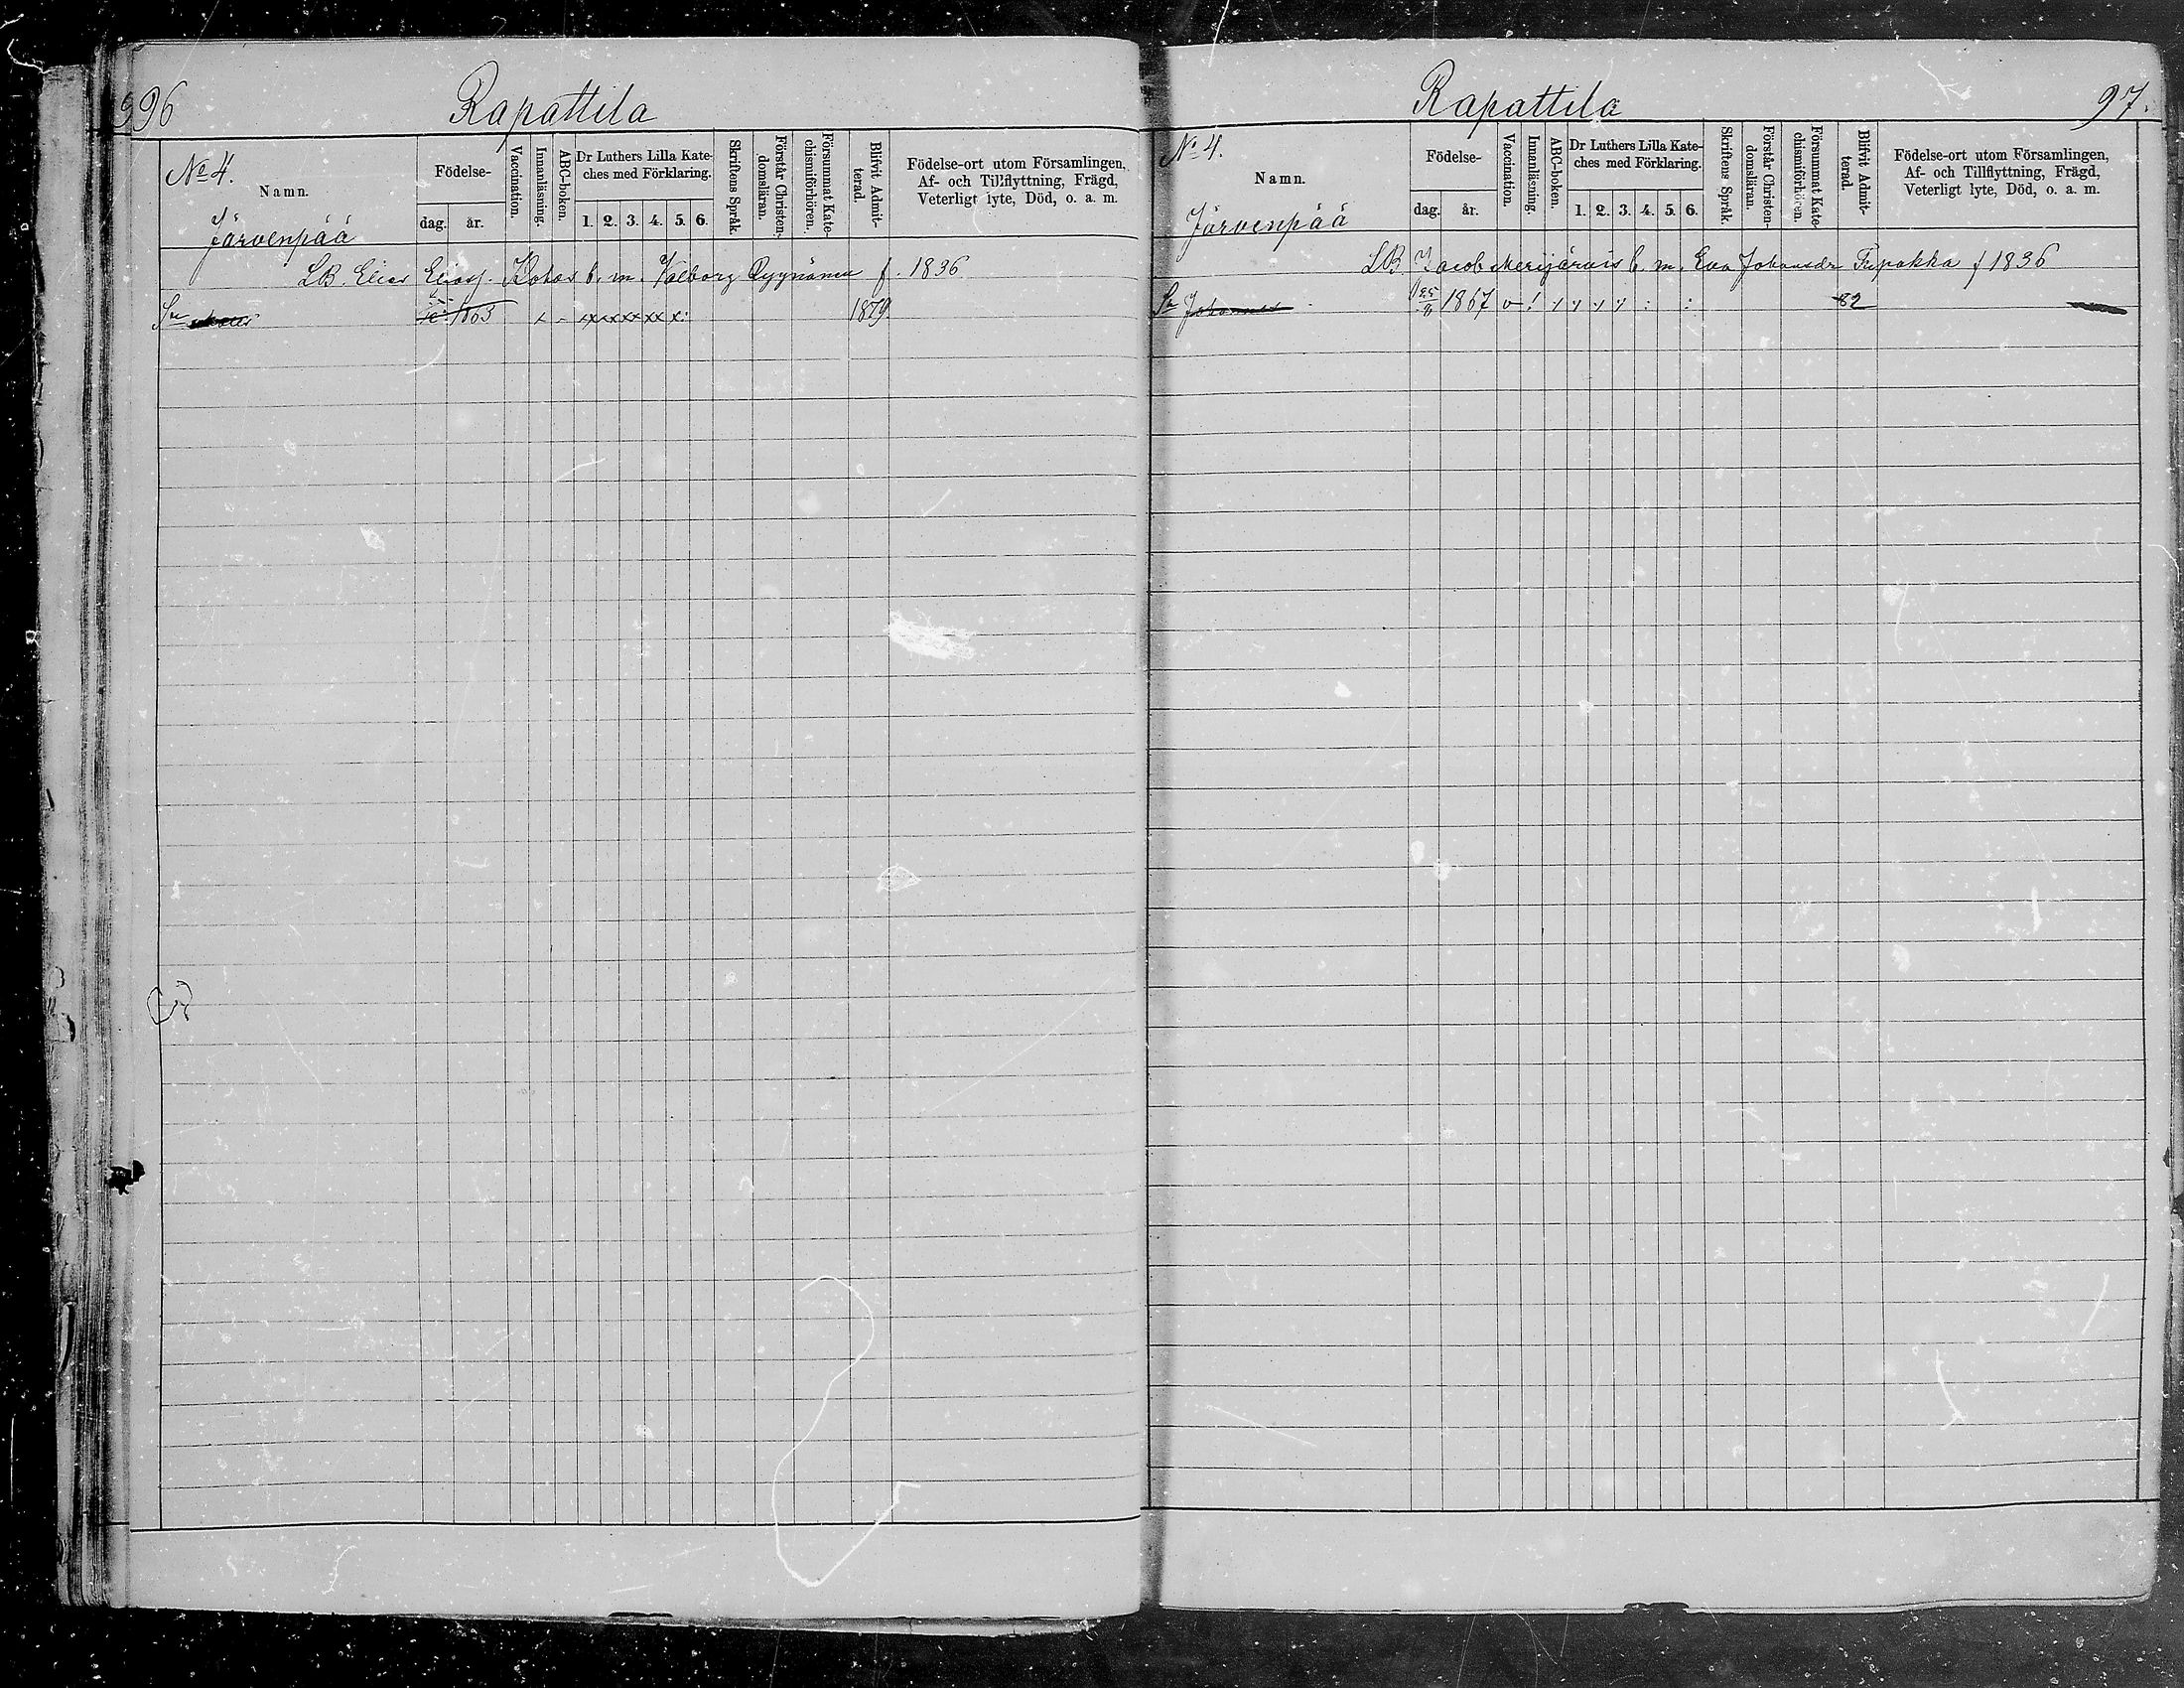 96
Rapattila
№ 4.
Namn.
Järvenpää
Födelse-
dag. år.
Vaccination.
Innanläsning.
ABC-boken.
Dr Luthers Lilla Kate-
ches med Förklaring.
1. 2. 3. 4. 5. 6.
Skriftens Språk.
Förstår Christen-
domsläran.
Försummat Kate-
chismiförhören.
Blifvit Admit-
terad.
Födelse-ort utom Församlingen,
Af- och Tillflyttning, Frägd,
Veterligt lyte, Död, o. a. m.
LB. Elias Eliass. Kotas b. m. Valborg Ryynänen f. 1836
Sn 1863 x - x x x x x x x: 1879
Rapattila
97.
№ 4.
Namn.
Järvenpää
Födelse-
dag. år.
Vaccination.
Innanläsning.
ABC-boken.
Dr Luthers Lilla Kate-
ches med Förklaring.
1. 2. 3. 4. 5. 6.
Skriftens Språk.
Förstår Christen-
domsläran.
Försummat Kate-
chismiförhören.
Blifvit Admit-
terad.
Födelse-ort utom Församlingen,
Af- och Tillflyttning, Frägd,
Veterligt lyte, Död, o. a. m.
LB Jacob Merijärvis b. m. Eva Johansdr f 1836
Sn Johannes 1867 v 82